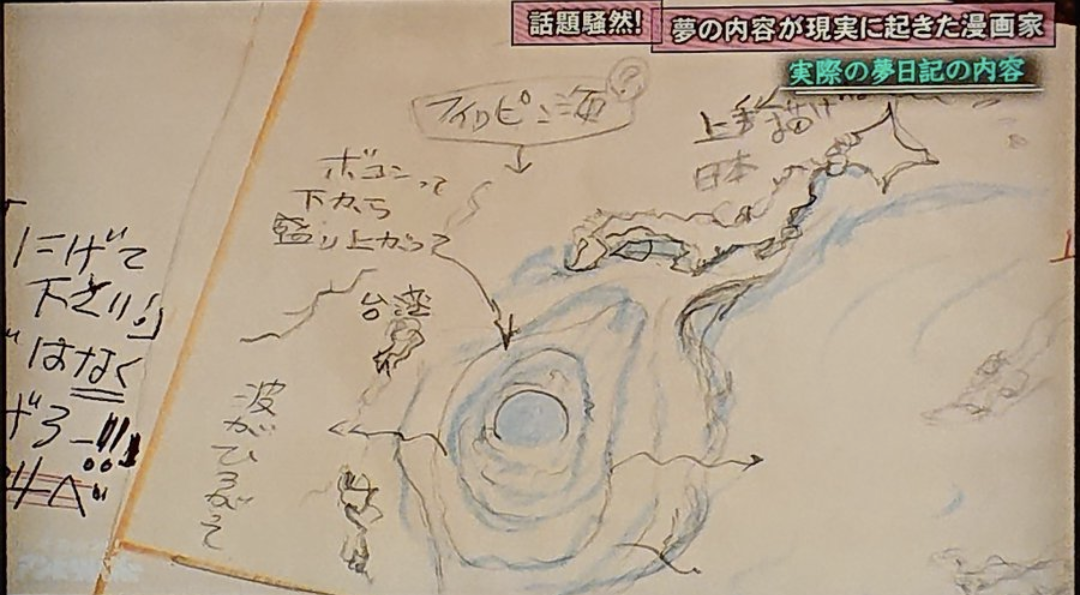 話題騒然!
夢の内容が現実に起きた漫画家
実際の夢日記の内容
フィリピン海?
ボコンって
下から
盛り上がって
日本
台湾
波がひろがって
にげて
下さい!」
はなく